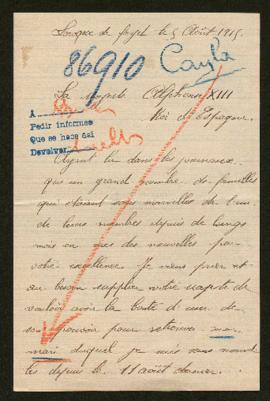 de fayet le 5 Août 1915.
86910
Cayla
Sa Alphonse XIII
Roi d'Espagne.
A
Pedir informes
Que se hace así
Devolver
Ayant lu dans les journaux
que un grand nombre de familles
qui étaient sans nouvelles de l'un
de leurs membres depuis de longs
mois on eues des nouvelles par
votre excellence. Je viens prier et
au besoin supplier votre majesté de
vouloir avoir la bonté d'user de
son pouvoir pour retrouver mon
mari duquel je suis sans nouvel
les depuis le 11 août dernier.